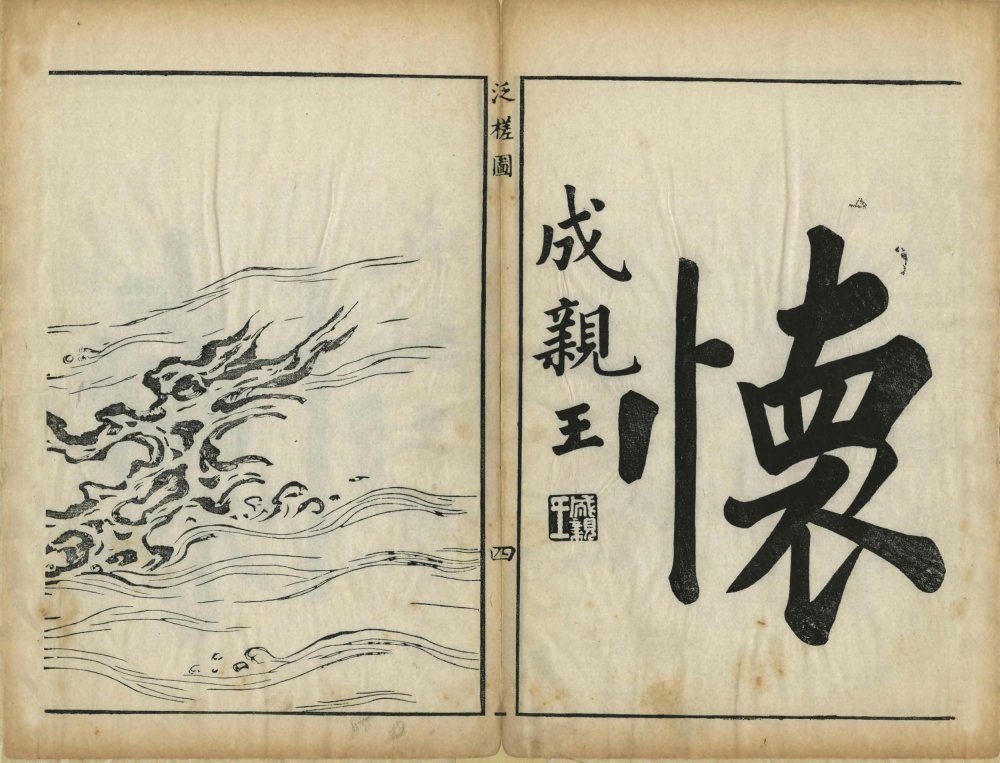 懐
成親王
成親王
泛槎圖
四